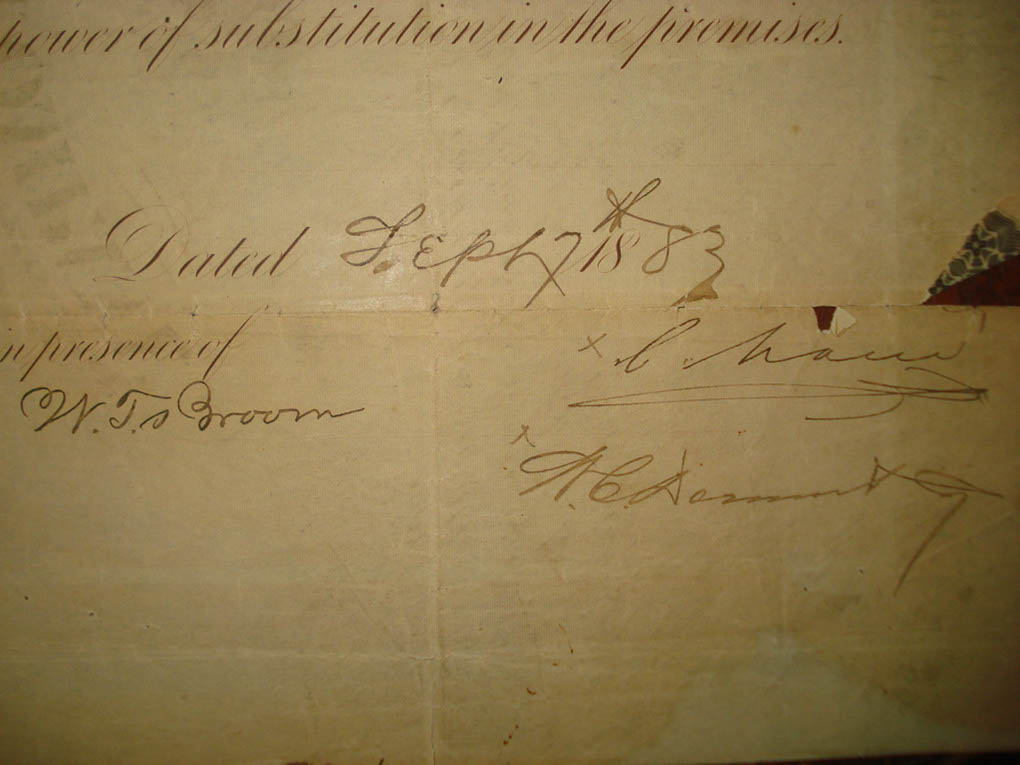 power of substitution in the premises.
Dated Sept 7th 1883
in presence of
W. T. Broom
x C.
x